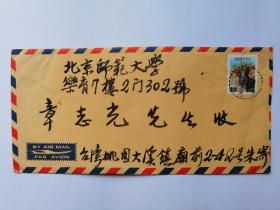 北京師範大學
樂育7樓2門302號
章志光先生收
BY AIR MAIL
PAR AVION
台灣桃園大溪鎮廟前2-42号朱寄